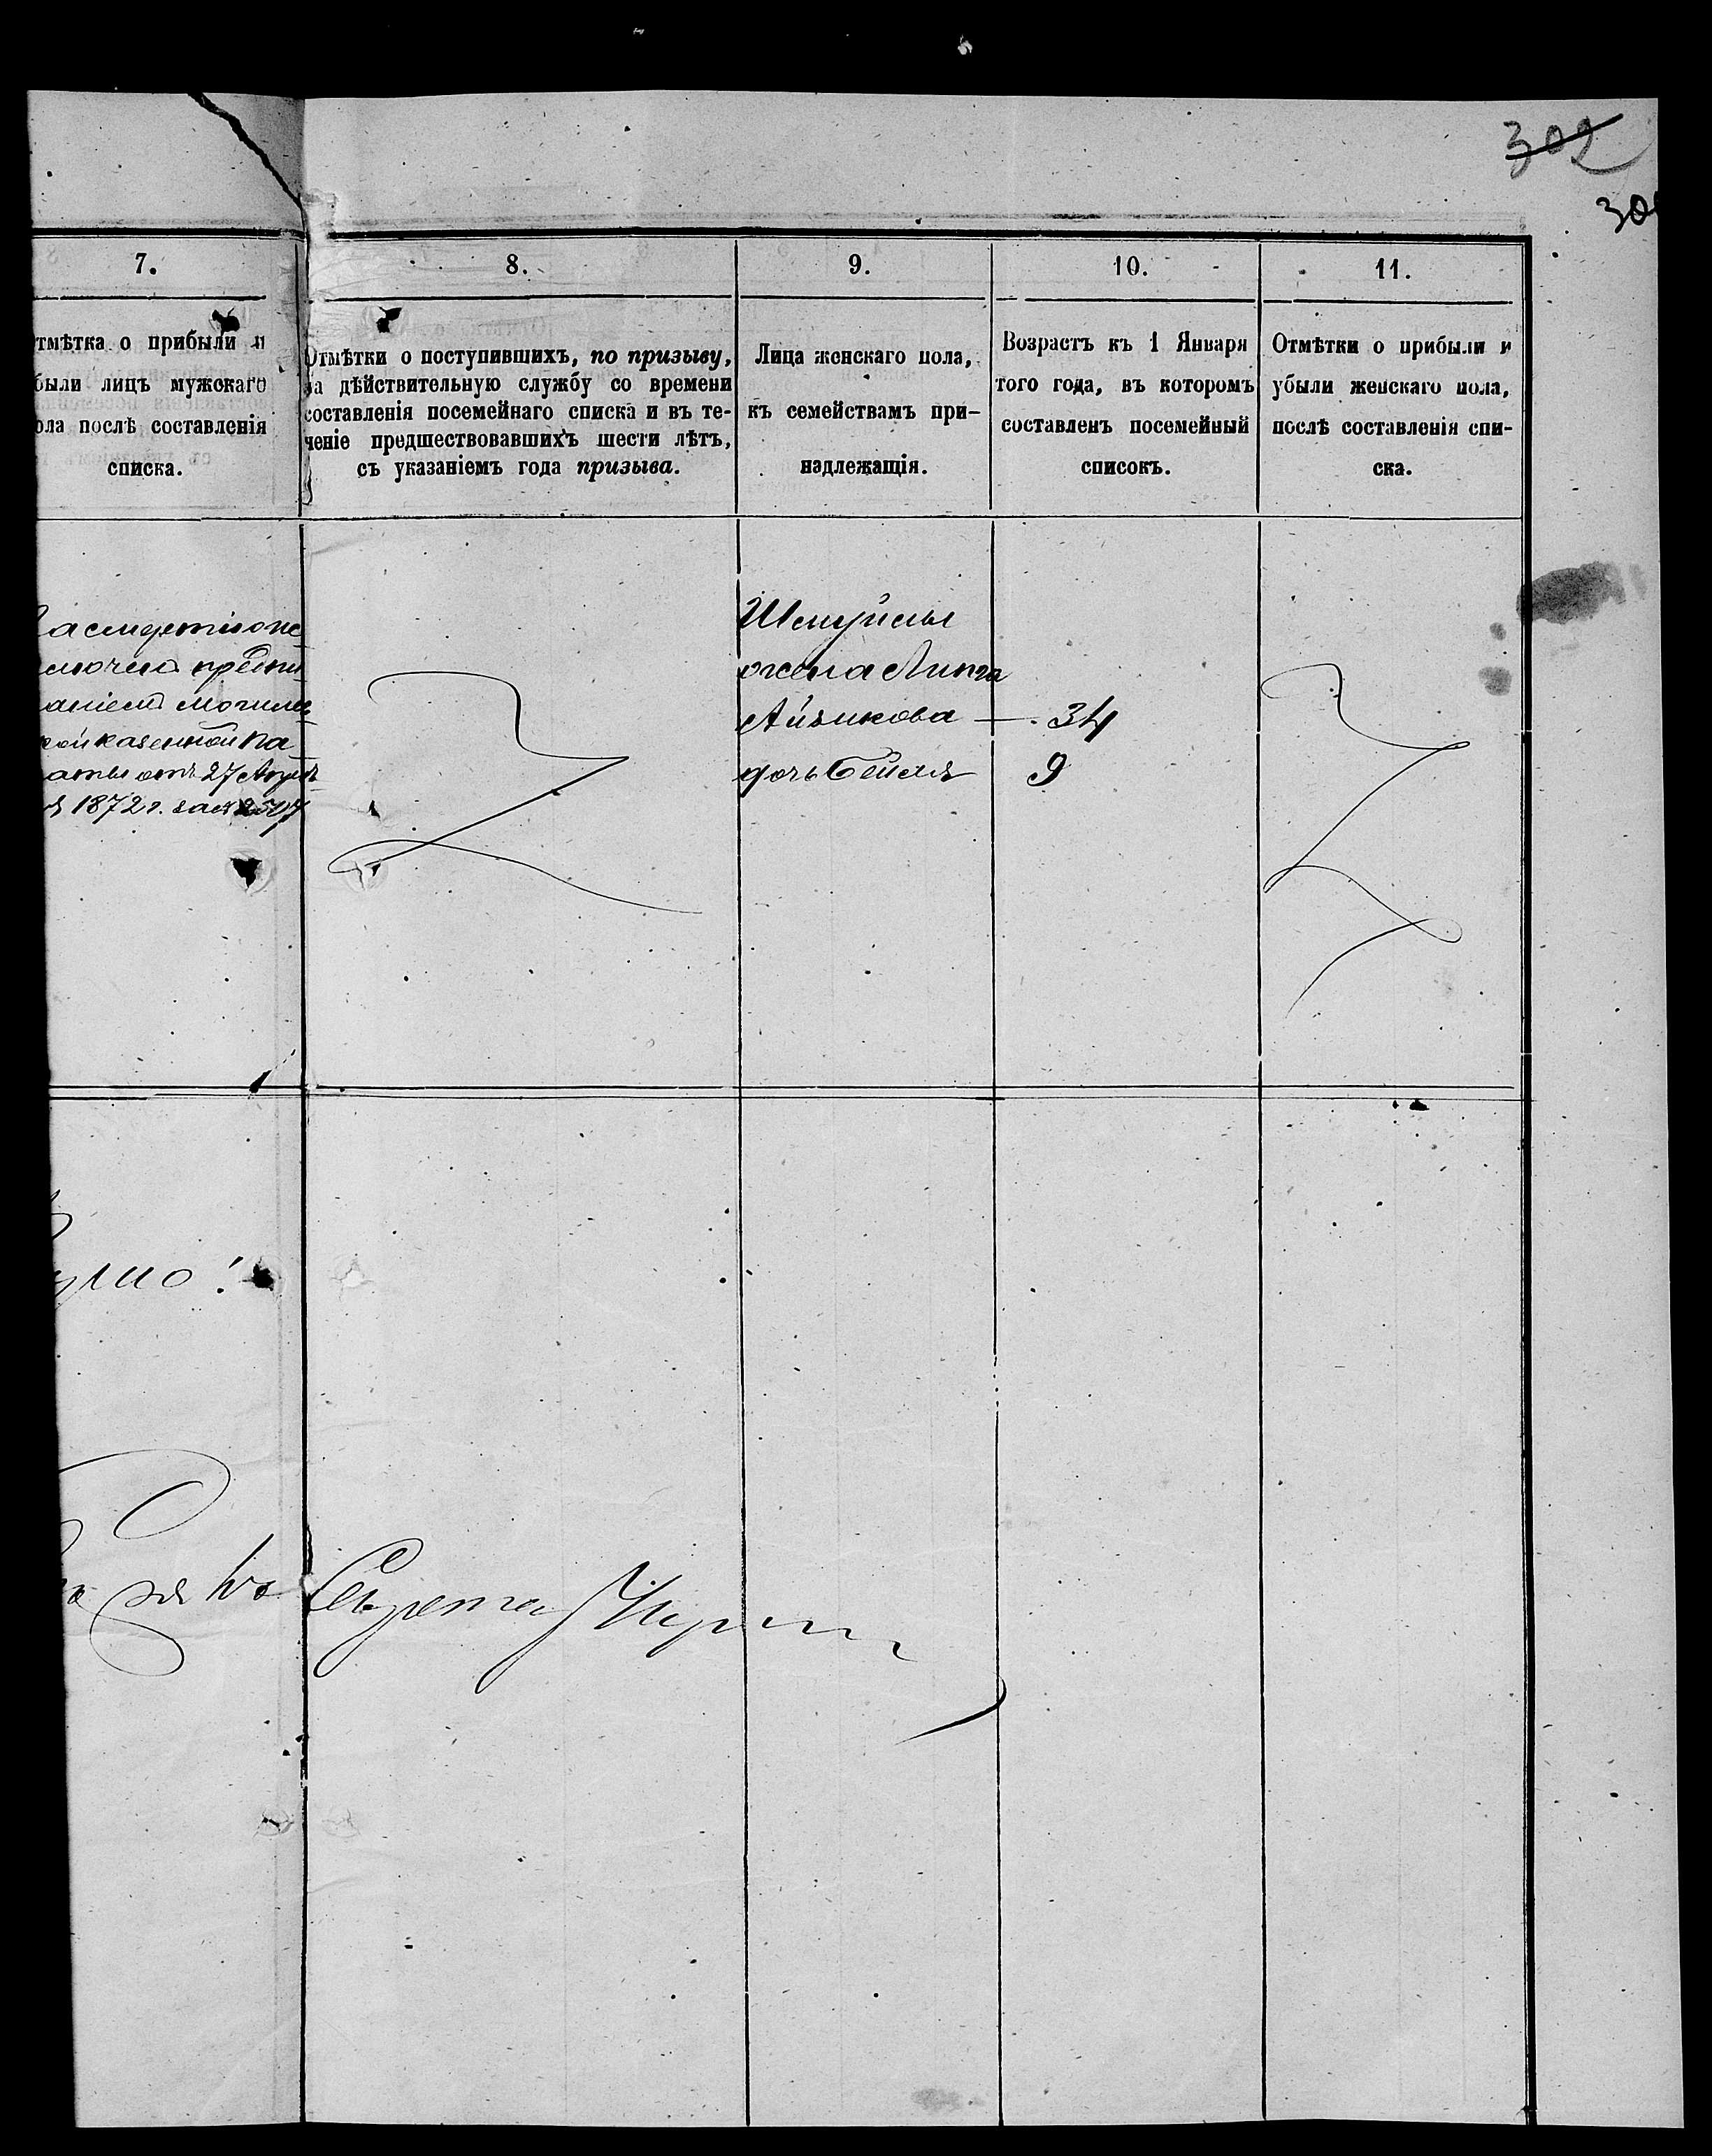 302
30
7.
8.
9.
10.
11.
тмѣтка о прибыли и
были лицъ мужскаго
ола послѣ составленія
списка.
Отмѣтки о поступившихъ, по призыву,
на дѣйствительную службу со времени
составленія посемейнаго списка и въ те-
ченіе предшествовавшихъ шести лѣтъ,
съ указаніемъ года призыва.
Лица женскаго пола,
къ семействамъ при-
надлежащія.
Возрастъ къ 1 Января
того года, въ которомъ
составленъ посемейный
списокъ.
Отмѣтки о прибыли и
убыли женскаго пола,
послѣ составленія спи-
ска.
За смертію ис
ключенъ предпи
аніемъ Могилев
кой казенной Па
аты отъ 27 Апрѣл
я 1872 г. за №
Шмуйлы
жена
Айзикова — 34
дочь Бейля 9
Секрета